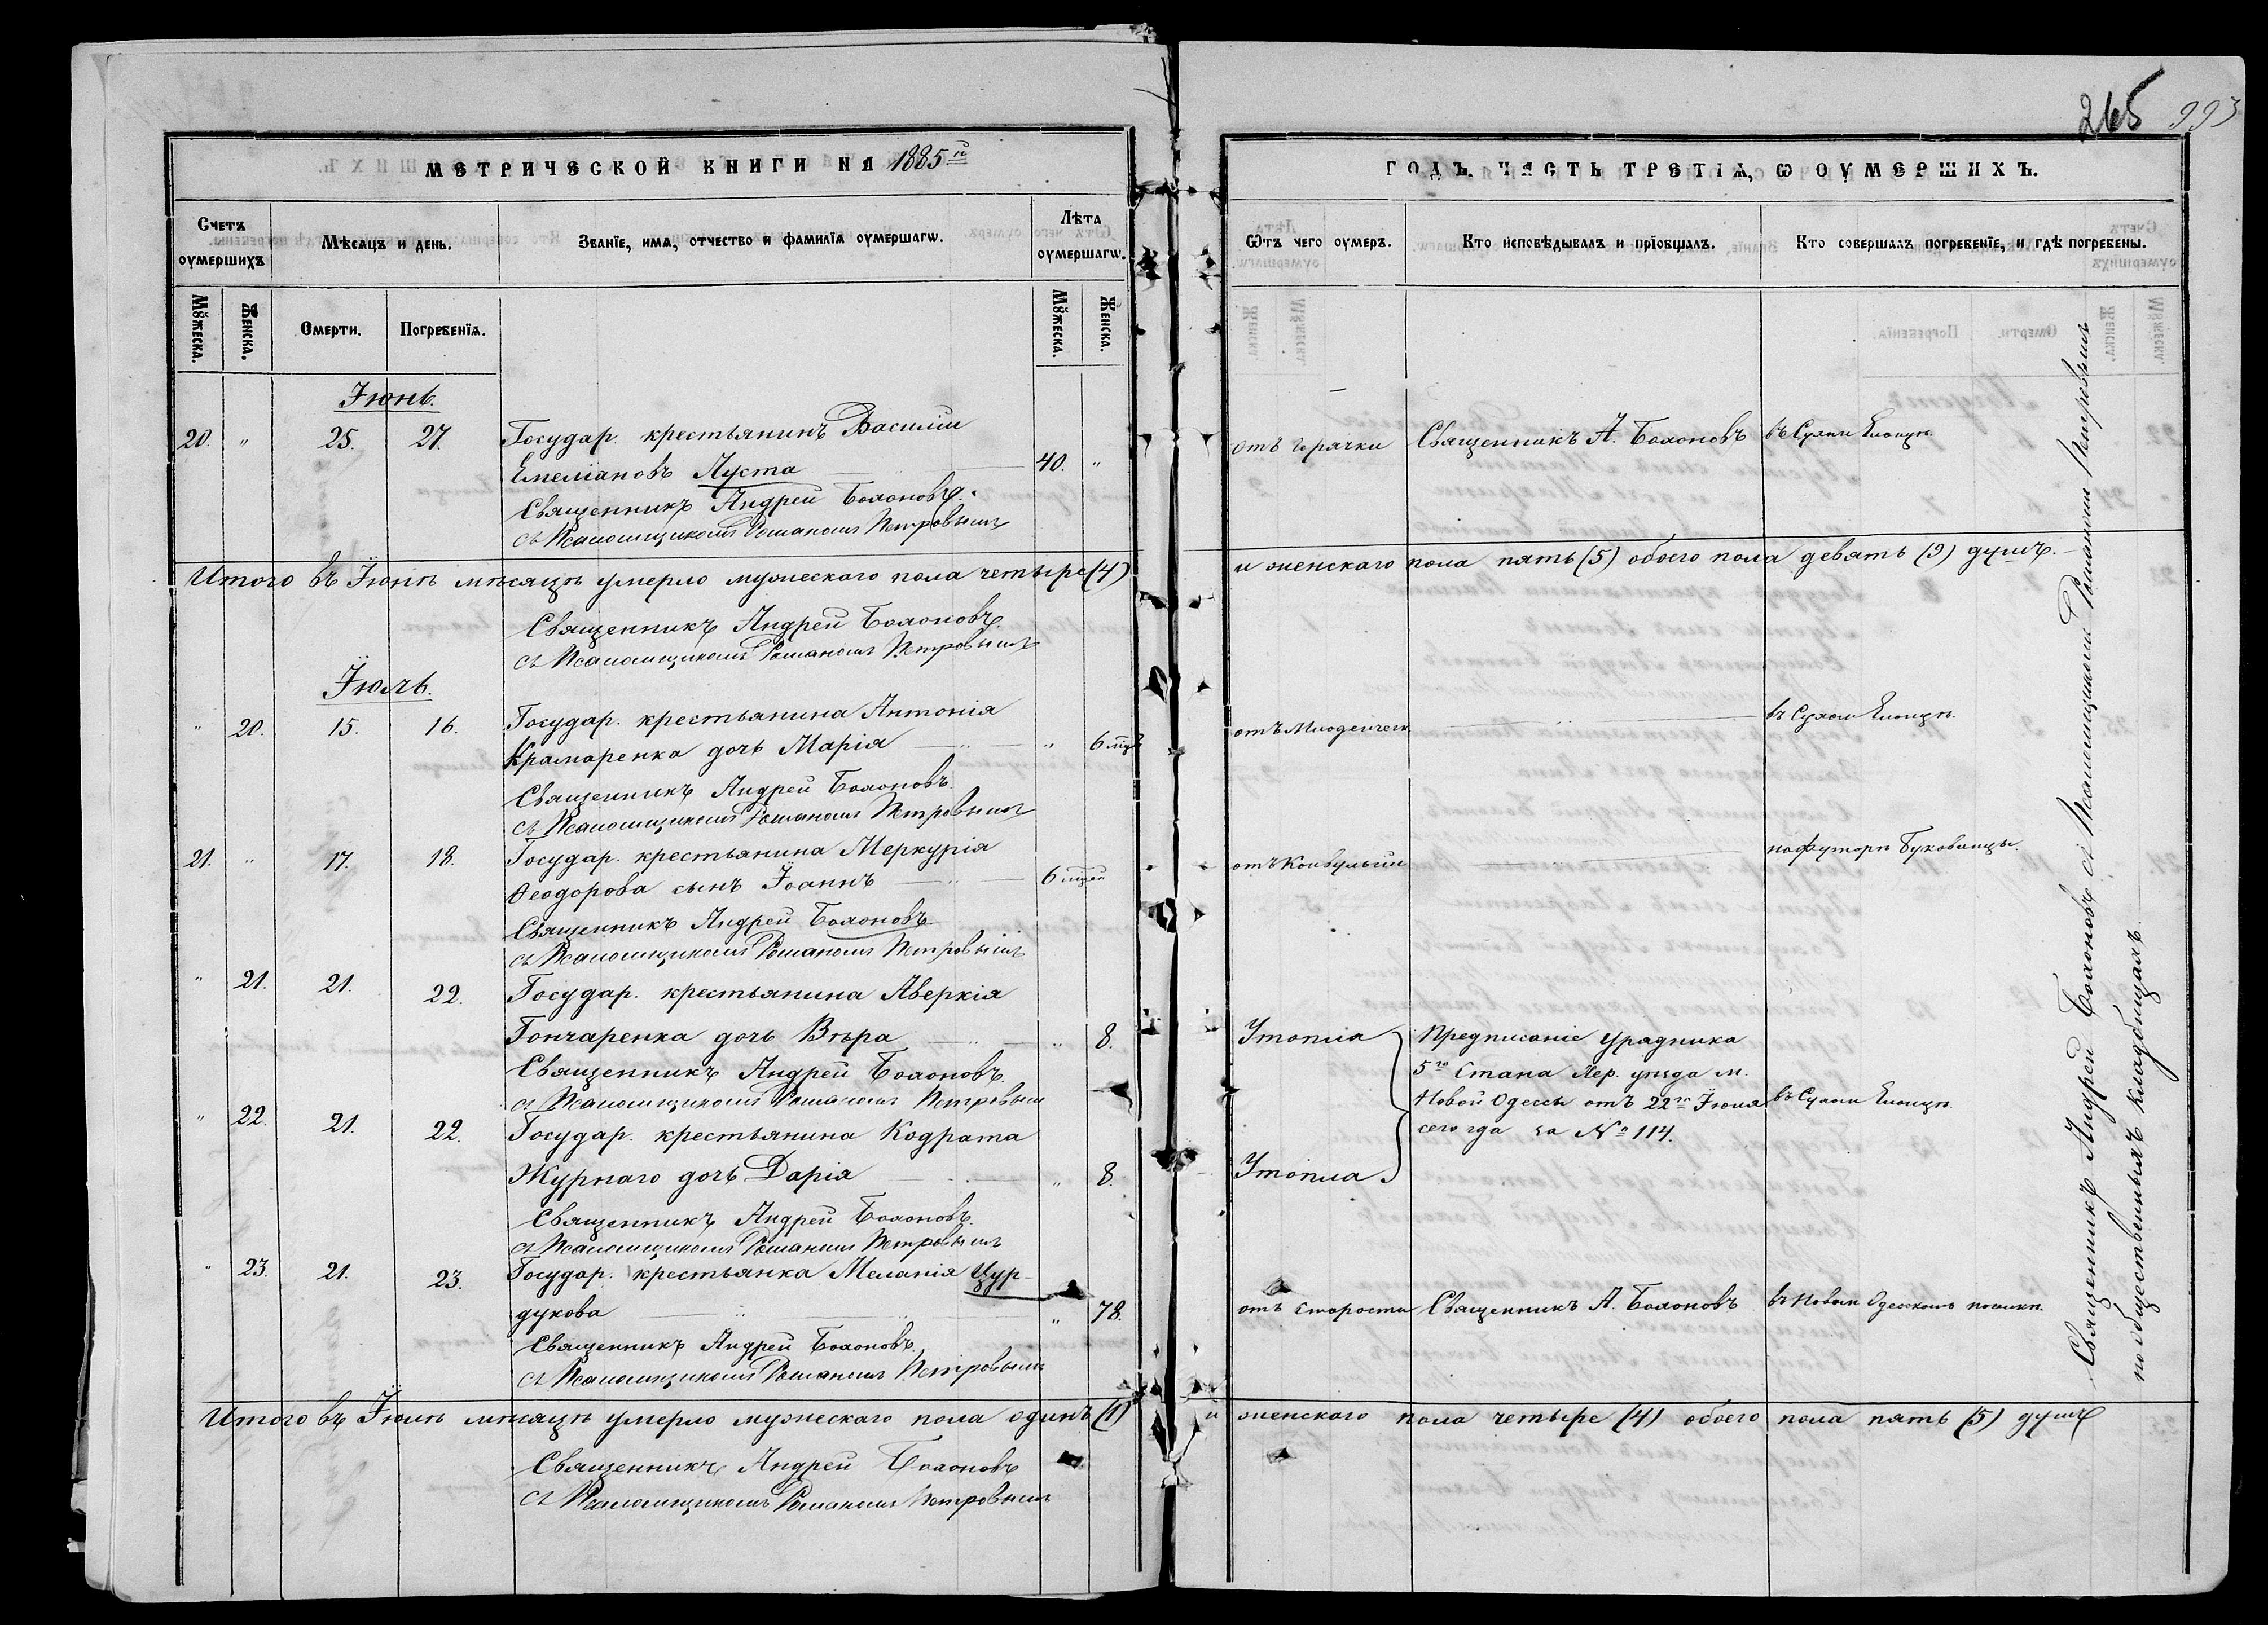 265 993
МЕТРИЧЕСКОЙ КНИГИ НА 1885й
ГОДЪ. ЧАСТЬ ТРЕТІѦ, Ѡ ОУМЕРШИХЪ.
Счетъ оумершихъ
Мѣсѧцъ и день.
Званїе, имѧ, отчество и фамилїѧ оумершагѡ.
Лѣта оумершагѡ.
Ѿтъ чего оумеръ.
Кто исповѣдывалъ и прїобщалъ.
Кто совершалъ погребенїе, и гдѣ погребены.
Мꙋжеска.
Женска.
Смерти.
Погребенїѧ.
Мꙋжеска.
Женска.
Іюнь.
20. „ 25. 27. Государ. крестьянинъ Василій
Емеліановъ Луста 40. „
отъ горячки Священникъ А. Болоновъ въ Сухом Еланцѣ.
Священникъ Андрей Болоновъ.
съ Псаломщикомъ Романомъ Петровымъ
Итого въ Іюнѣ мѣсяцѣ умерло мужескаго пола четыре (4) и женскаго пола пять (5) обоего пола девять (9) душъ.
Священникъ Андрей Болоновъ.
съ Псаломщикомъ Романомъ Петровымъ
Іюль.
„ 20. 15. 16. Государ. крестьянина Антонія
Крамаренка дочь Марія „ 6 мѣс
отъ Младенческ въ Сухом Еланцѣ.
Священникъ Андрей Болоновъ
съ Псаломщикомъ Романомъ Петровымъ
21. „ 17. 18. Государ. крестьянина Меркурія
Ѳеодорова сынъ Іоаннъ 6 мцей
отъ Конвульсіи на футорѣ Буховицы.
Священникъ Андрей Болоновъ
съ Псаломщикомъ Романомъ Петровымъ
„ 21. 21. 22. Государ. крестьянина Аверкія
Гончаренка дочь Вѣра „ 8.
Утопла
Священникъ Андрей Болоновъ.
съ Псаломщикомъ Романомъ Петровым
Предписаніе Урядника
5го Стана Хер. уѣзда м.
Новой Одессы отъ 22го Іюля
сего гда за № 114.
въ Сухом Еланцѣ.
„ 22. 21. 22. Государ. крестьянина Кодрата
Журнаго дочь Дарія „ 8.
Утопла
Священникъ Андрей Болоновъ.
съ Псаломщикомъ Романомъ Петровымъ
„ 23. 21. 23. Государ. крестьянка Меланія Цур-
дукова „ 78.
отъ старости Священникъ А. Болоновъ въ Новом Одесскомъ
Священникъ Андрей Болоновъ.
съ Псаломщикомъ Романомъ Петровымъ
Итого въ Іюлѣ мѣсяцѣ умерло мужескаго пола одинъ (1) и женскаго пола четыре (4) обоего пола пять (5) душъ
Священникъ Андрей Болоновъ
съ Псаломщикомъ Романомъ Петровымъ
Священникъ Андрей Болоновъ съ Псаломщикомъ Романомъ Петровымъ
на общественныхъ кладбищахъ.